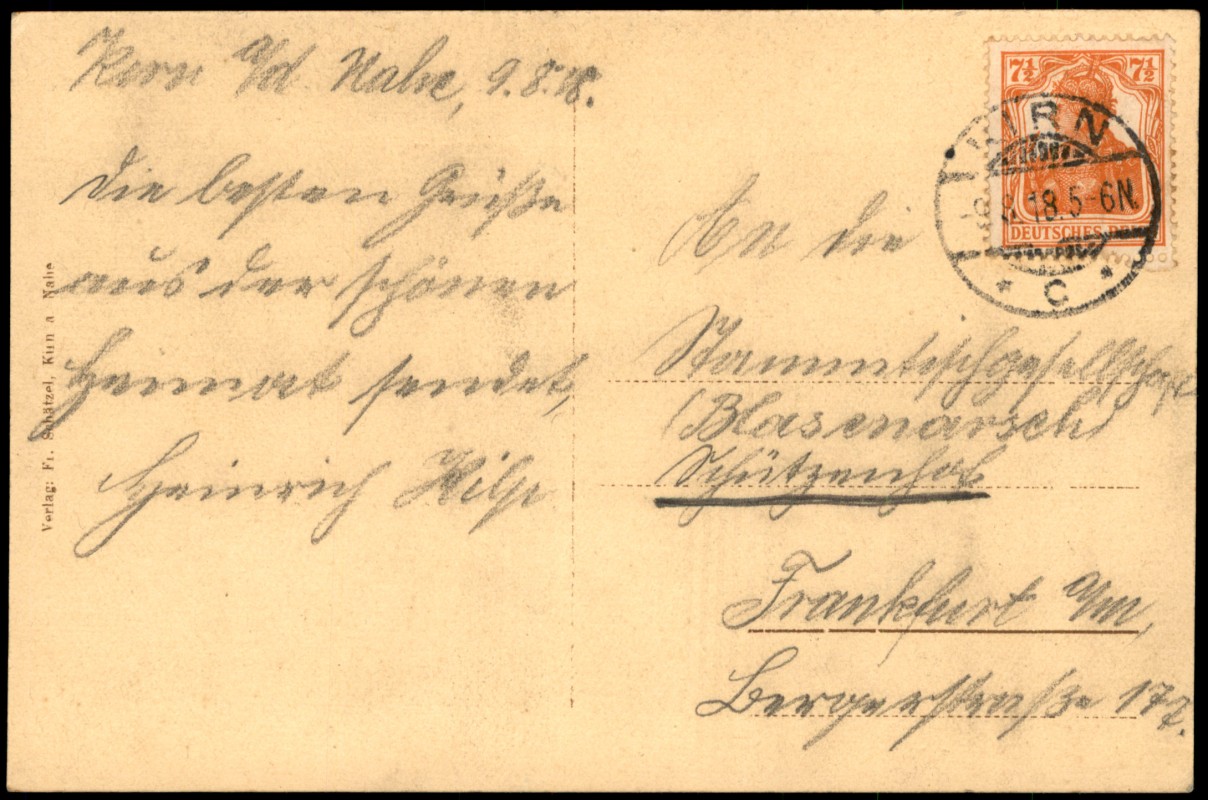 Kirn a/d. Nahe, 9.8.18.
Die besten Grüße
aus der schönen
Heimat sendet,
Heinrich Hilß
Verlag: Fr. Schätzel, Kirn a Nahe
7½ 7½
DEUTSCHES
KIRN
18.5-6N.
* C *
An die
Stammtischgesellschaft
(Blasenarsch)
Schützenhof
Frankfurt a/m,
Bergerstraße 177.